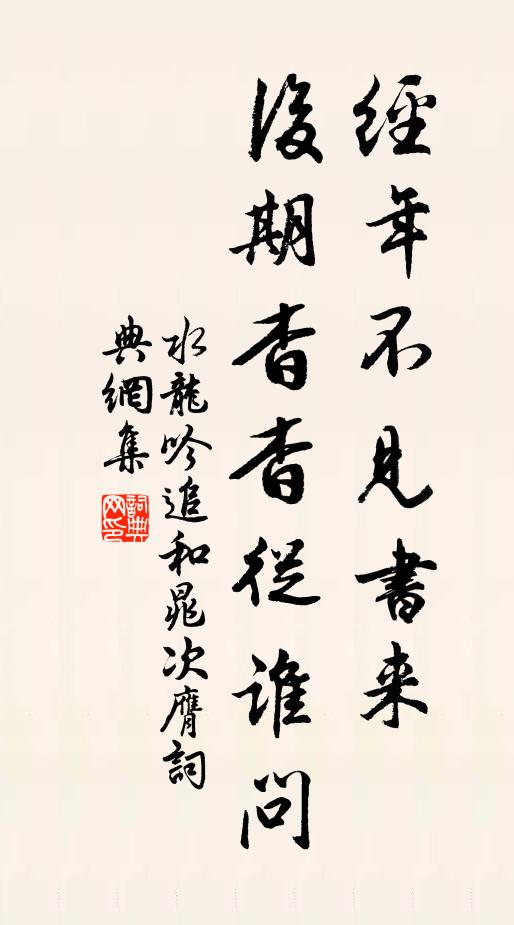 經年不見書来
後期杳杳從誰問
水龍吟追和晁次膺詞
典網集
詞典
网印